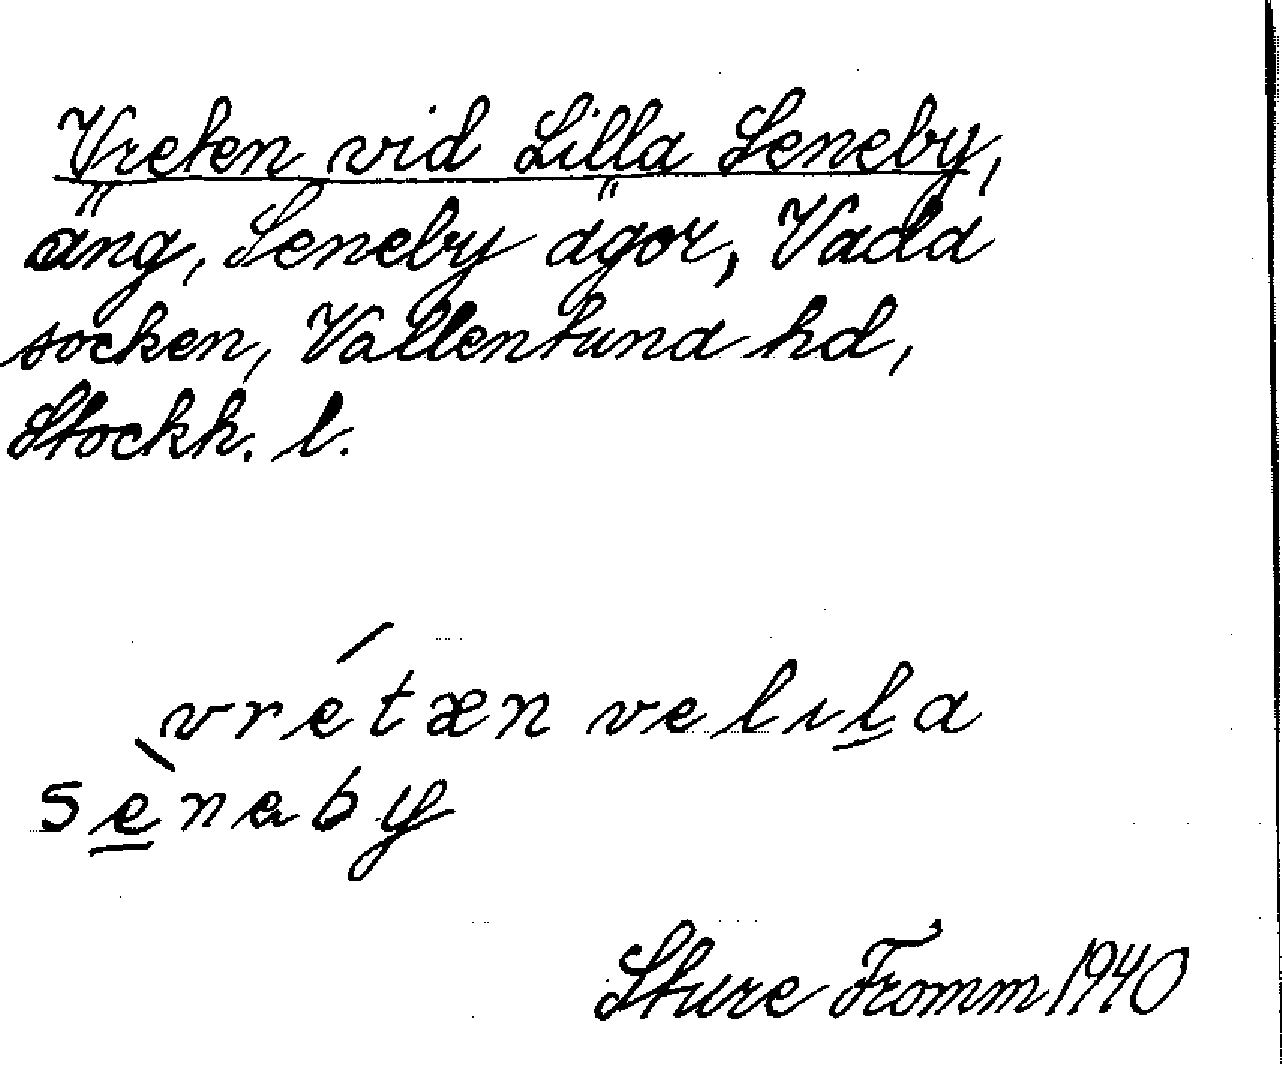 Vreten vid Lilla Seneby,
äng, Seneby ägor, Vada
socken, Vallentuna hd,
Stockh. l.
vrétæn velıḻa
sè̱naby
Sture Fromm 1940